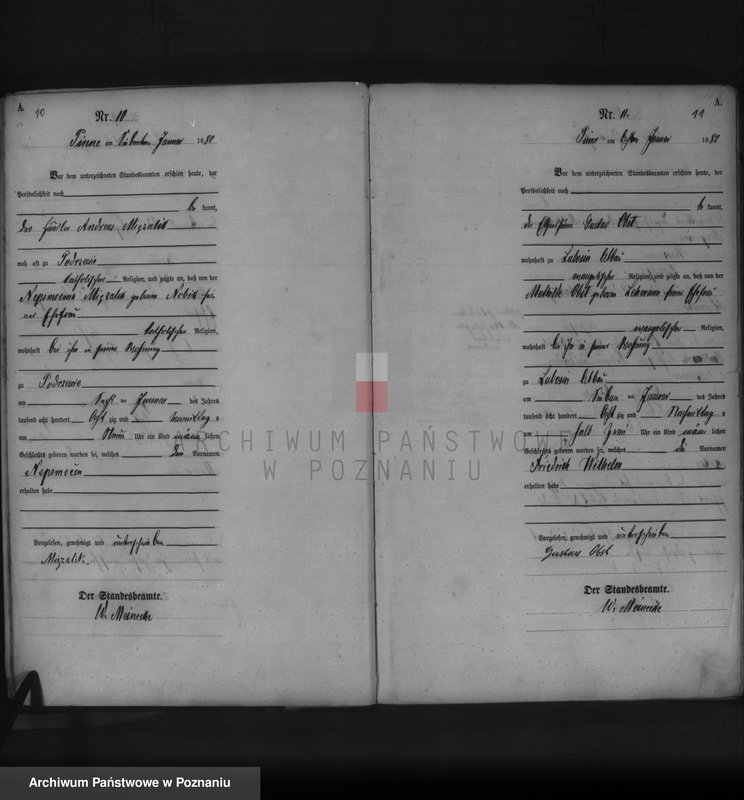 A. 10
Nr. 10
Pinne am Siebenten Januar 1880
Vor dem unterzeichneten Standesbeamten erschien heute, der
Persönlichkeit nach
be kannt,
der Häusler Andreas Mizralik
wohnhaft zu Podrzewie
katholischer Religion, und zeigte an, daß von der
Nepomocena Mizralik geborenen
Ehefrau
katholischer Religion,
wohnhaft bei ihm in seiner Wohnung
zu Podrzewie
am Januar des Jahres
tausend acht hundert Achtzig und Vormittag s
um Uhr ein Kind männlichen
Geschlechts geboren worden sei, welches den Vornamen
Nepomocin
erhalten habe
Vorgelesen, genehmigt und unterschrieben
Mizralik.
Der Standesbeamte.
W. Meinecke
A.
11
Nr. 11.
Pinne am Achten Januar 1880
Vor dem unterzeichneten Standesbeamten erschien heute, der
Persönlichkeit nach
be kannt,
der Eigenthümer Gustav Obst
wohnhaft zu Lubosin Abbau
evangelischer Religion, und zeigte an, daß von der
Mathilde Obst geborenen Lehmann seiner Ehefrau
evangelischer Religion,
wohnhaft bei ihm in seiner Wohnung
zu Lubosin Abbau
am Sieben ten Januar des Jahres
tausend acht hundert Achtzig und Nachmittag s
um halb Uhr ein Kind männlichen
Geschlechts geboren worden sei, welches die Vornamen
Friedrich Wilhelm
erhalten habe
Vorgelesen, genehmigt und unterschrieben
Gustav Obst
Der Standesbeamte.
W. Meinecke
ARCHIWUM PAŃSTWOWE
W POZNANIU
Archiwum Państwowe w Poznaniu